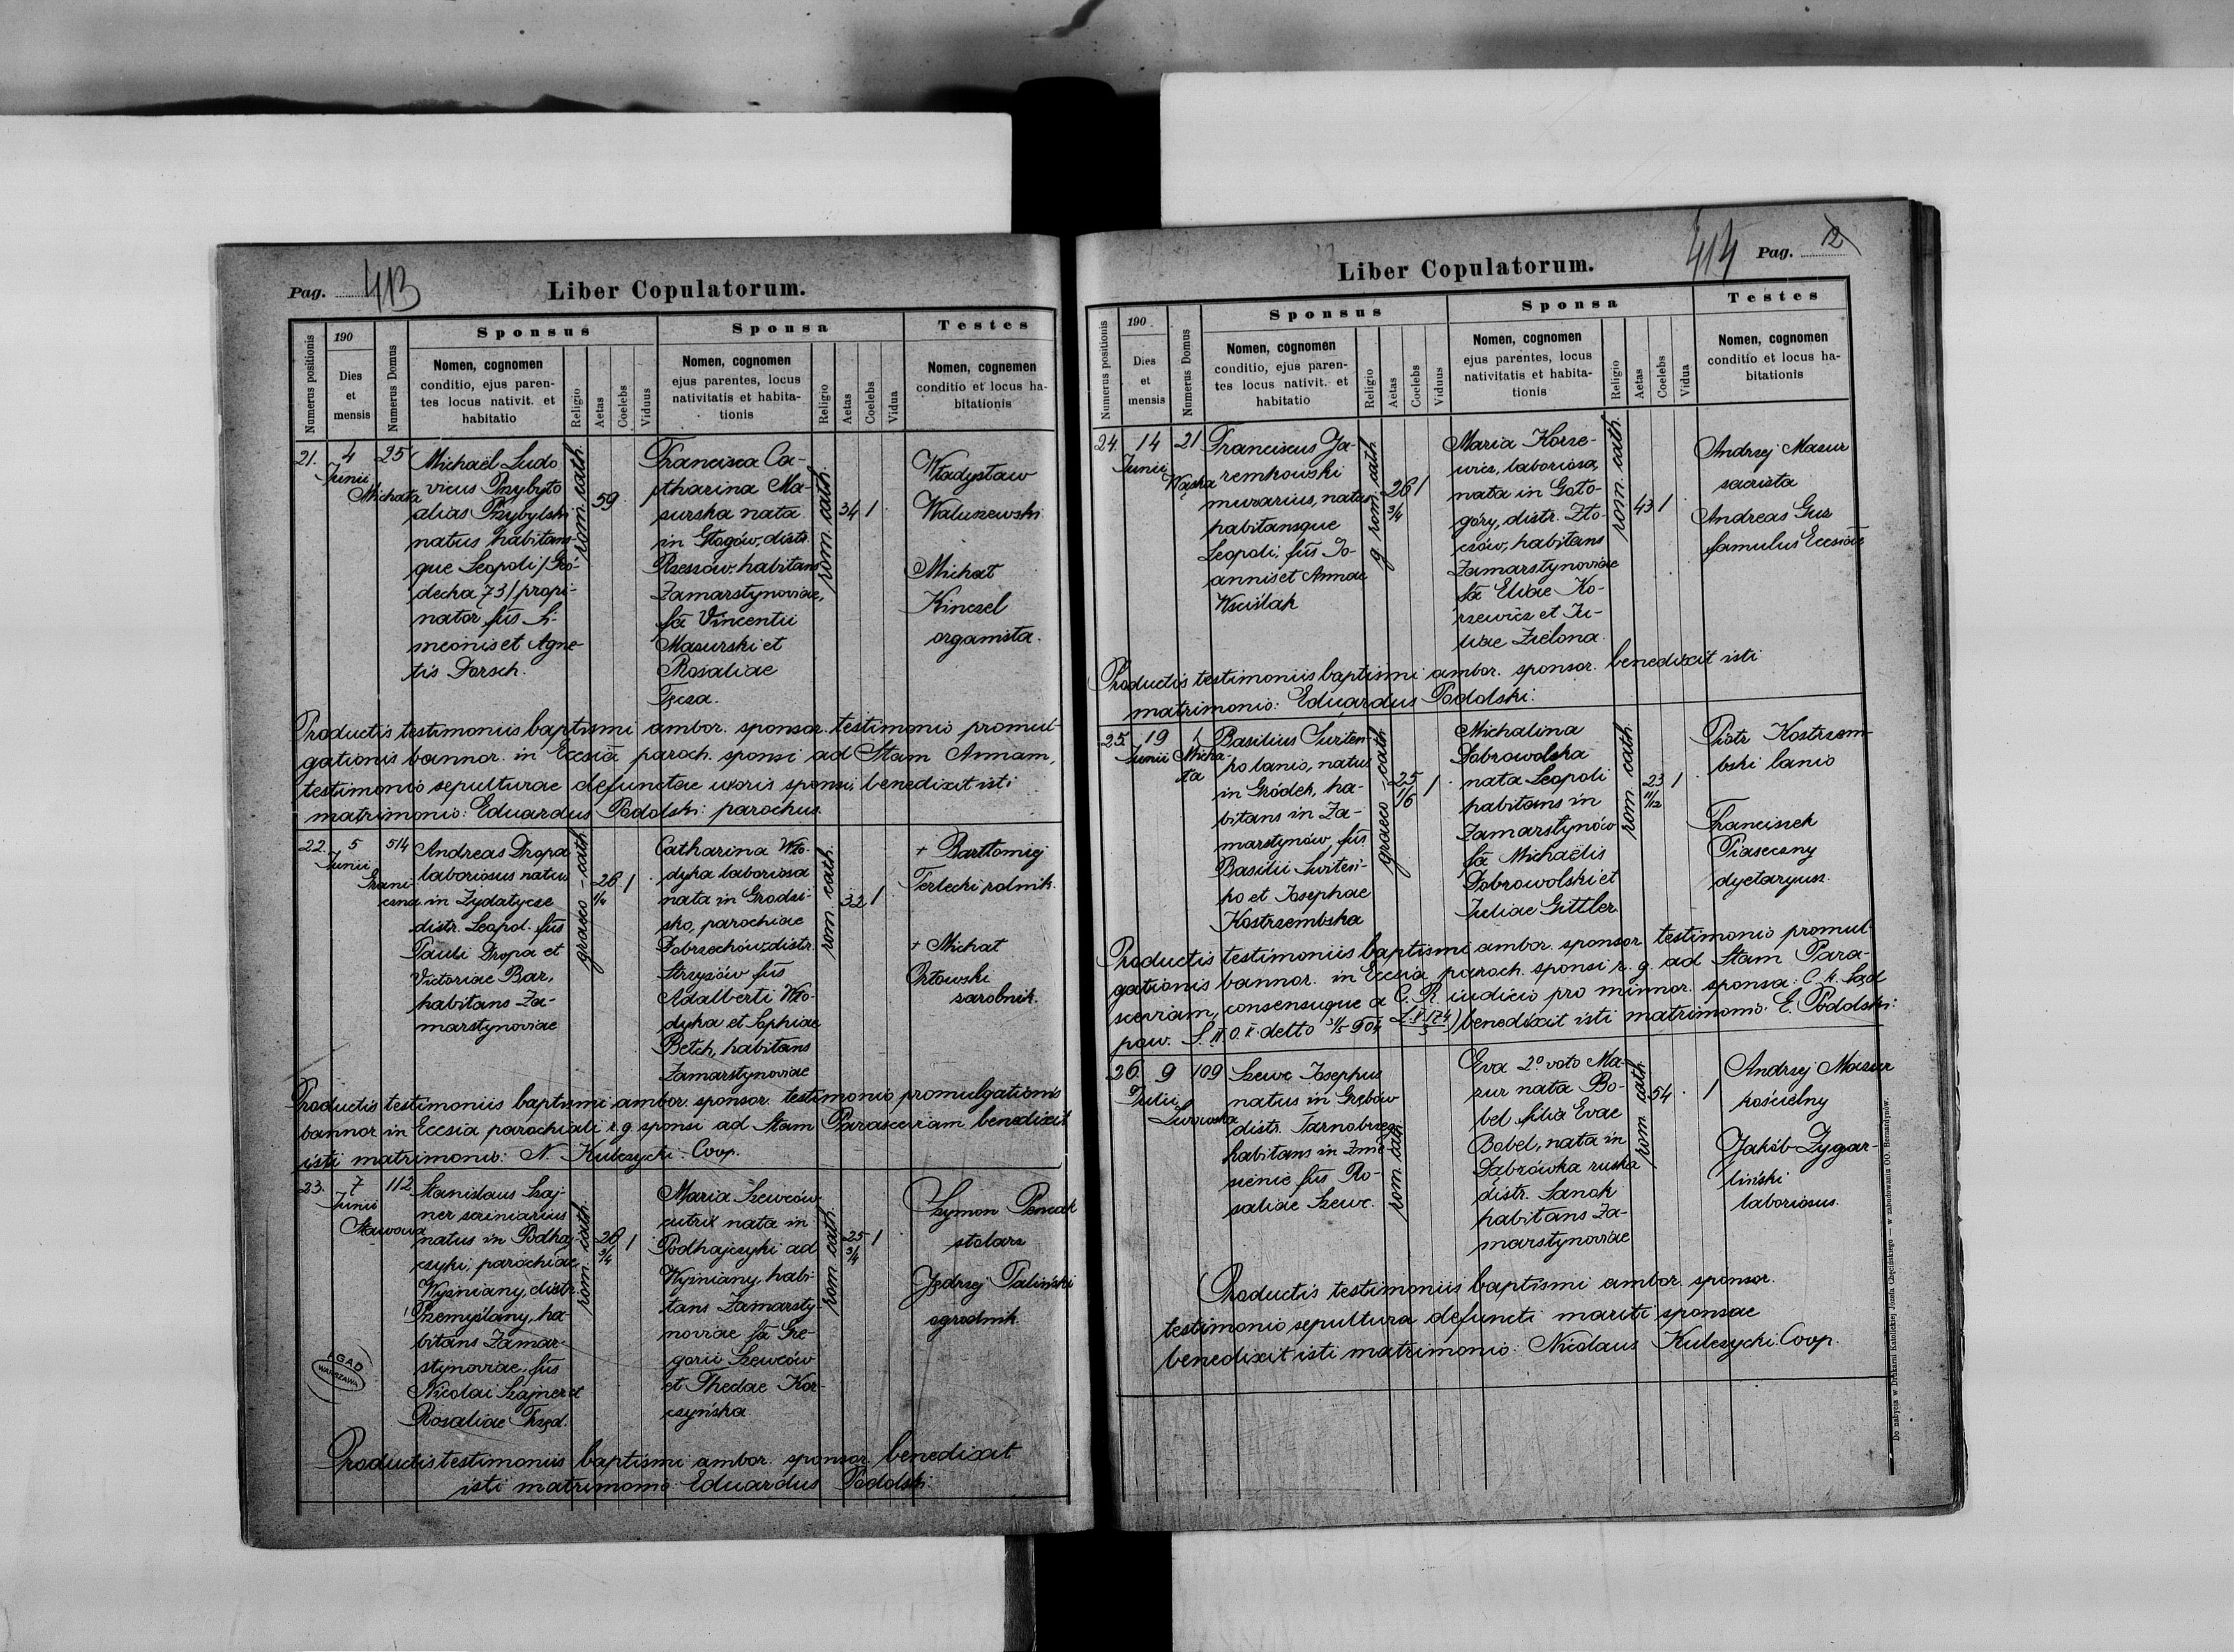 Pag. 413
Liber Copulatorum.
Numerus positionis
190
Dies
et
mensis
Numerus Domus
Sponsus
Nomen, cognomen
conditio, ejus paren-
tes locus nativit. et
habitatio
Religio
Aetas
Coelebs
Viduus
Sponsa
Nomen, cognomen
ejus parentes, locus
nativitatis et habita-
tionis
Religio
Aetas
Coelebs
Vidua
Testes
Nomen, cognemen
conditio et locus ha-
bitationis
21.
4
Junii
25
Michała
Michaël Ludo
vicus Przybyło
alias Przybylski
natus habitans-
que Leopoli / Gró-
decka 73 / propi-
nator fūs Si-
meonis et Agne-
tis Dorsch.
rom. cath.
59
Francisca Ca-
tharina Ma-
zurska nata
in Głogów, distr.
Rzeszów habitans
Zamarstynoviae,
fa Vincentii
Mazurski et
Rosaliae
Tęcza.
rom. cath.
34
1
Władysław
Waluszewski
Michał
Kinczel
organista.
Productis testimoniis baptismi ambor. sponsor. testimonio promul-
gationis bannor. in Ecclesia paroch. sponsi ad Stam Annam,
testimonio sepulturae defunctae uxoris sponsi, benedixit isti
matrimonio: Eduardus Podolski: parochus.
22.
5
Junii
514
Grani
czna
Andreas Dropa
laboriosus natus
in Zydatycze
distr. Leopol. fūs
Pauli Dropa et
Victoriae Bar,
habitans Za-
marstynoviae
graeco-cath
26
1/4
1
Catharina Wło-
dyka laboriosa
nata in Grodzi-
sko, parochiae
Dobrzechów distr.
Strzyżów fūs
Adalberti Wło-
dyka et Sophiae
Betch, habitans
Zamarstynoviae
rom. cath.
32
1
+ Bartłomiej
Terlecki rolnik.
+ Michał
Orłowski
zarobnik.
Productis testimoniis baptismi ambor. sponsor. testimonio promulgationis
bannor. in Eccsia parochiali r. g. sponsi ad Stam Parasceviam benedixit
isti matrimonio: N. Kulczycki. Coop.
23.
7
Junii
112
Stawowa
Stanislaus Szaj-
ner scriniarius
natus in Podhaj-
czyki, parochiae
Wyżniany, distr.
Przemyślany, ha
bitans Zamar-
stynoviae, fūs
Nicolai Szajner et
Rosaliae Trzęd.
rom. cath.
26
3/4
1
Maria Szewców
sutrix nata in
Podhajczyki ad
Wyżniany, habi-
tans Zamarsty-
noviae fa Gre-
gorii Szewców
et Theclae Kor-
czyńska.
rom. cath.
25
3/4
1
Szymon
stolarz
Jędrzej Paliński
ogrodnik.
Productis testimoniis baptismi ambor. sponsor. benedixit
isti matrimonio: Eduardus Podolski.
AGAD
WARSZAWA
414 Pag. 12
Liber Copulatorum.
Numerus positionis
190
Dies
et
mensis
Numerus Domus
Sponsus
Nomen, cognomen
conditio, ejus paren-
tes locus nativit. et
habitatio
Religio
Aetas
Coelebs
Viduus
Sponsa
Nomen, cognomen
ejus parentes, locus
nativitatis et habita-
tionis
Religio
Aetas
Coelebs
Vidua
Testes
Nomen, cognomen
conditio et locus ha-
bitationis
24.
14
Junii
21
Wąska
Franciscus Ja-
remkowski
murarius, natus
habitansque
Leopoli, fūs Jo-
annis et Annae
Wściślak
g rom. cath.
26
3/4
1
Maria Korze-
wicz, laboriosa,
nata in Goło-
góry, distr. Zło-
czów, habitans
Zamarstynoviae
fa Eliae Ko-
rzewicz et Ju-
liae Zielona.
rom. cath.
43
1
Andrzej Mazur
sacrista
Andreas Guz
famulus Ecclesiae
Productis testimoniis baptismi ambor. sponsor. benedixit isti
matrimonio: Eduardus Podolski.
25.
19
Junii
Micha-
ła
Basilius Świteń-
ko lanio, natus
in Gródek, ha-
bitans in Za-
marstynów, fūs
Basilii Świteń-
ko et Josephae
Kostrzembska
graeco-cath
25
11/6
1
Michalina
Dobrowolska
nata Leopoli
habitans in
Zamarstynów
fa Michaëlis
Dobrowolski et
Juliae Gittler.
rom. cath.
23
11/12
1
Piotr Kostrzem-
bski lanio
Franciszek
Piaseczny
dyetaryusz.
Productis testimoniis baptismi ambor. sponsor testimonio promul-
gationis bannor. in Eccsia paroch. sponsi r. g. ad Stam Para-
sceviam, consensuque a C. R. iudicio pro minnor. sponsa: C. k. Sąd
pow. S. II. O. X. detto 31/5 904 benedixit isti matrimonio: E. Podolski:
26.
9
Julii
109
Lwowska
Szewc Josephus
natus in Grębów
distr. Tarnobrzeg
habitans in Znie-
sienie fūs Ro-
saliae Szewc.
rom. cath
Eva 2º voto Ma-
zur nata Bo-
bel filia Evae
Bobel, nata in
Dąbrówka ruska
distr. Sanok
habitans Za-
marstynoviae
rom cath.
54
1
Andrzej Mazur
kościelny
Jakób Zygar-
liński
laboriosus.
Productis testimoniis baptismi ambor. sponsor.
testimonio sepultura defuncti mariti sponsae
benedixit isti matrimonio: Nicolaus Kulczycki. Coop.
Do nabycia w Drukarni Katolickiej Józefa Chęcińskiego – w zabudowaniu OO. Bernardynów.